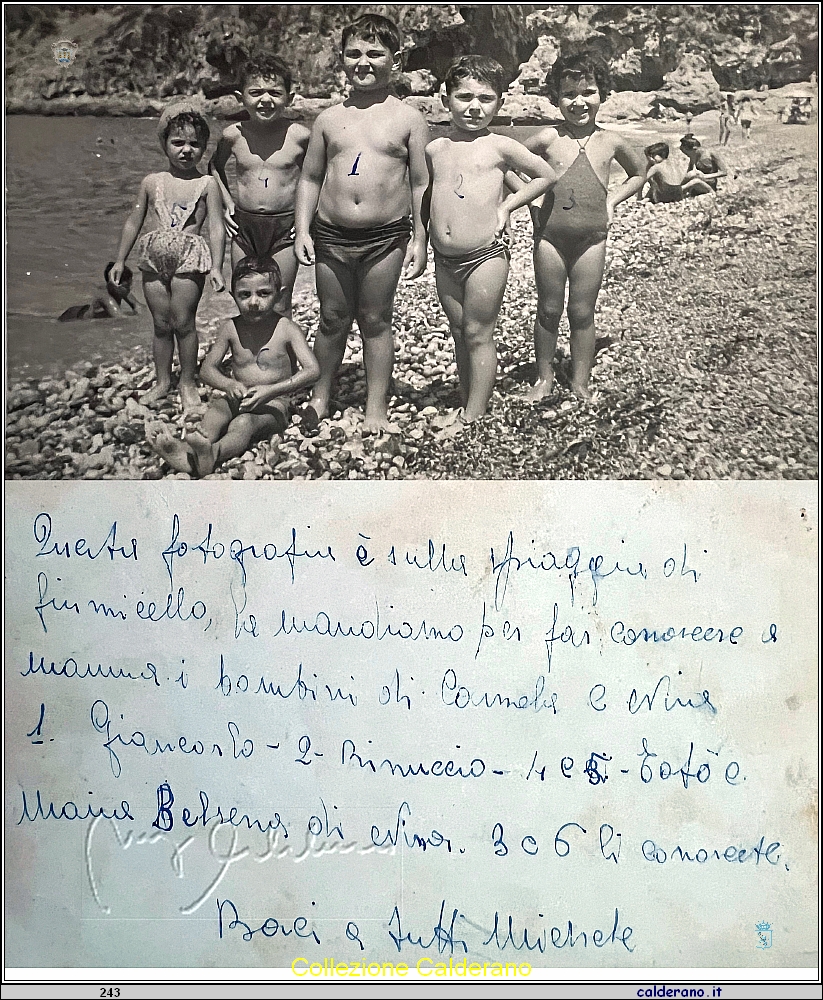 4
1
2
5
3
6
Questa fotografia è sulla spiaggia di
fiumicello, la mandiamo per far conoscere a
mamma i bambini di Carmela e Nina
1. Giancarlo - 2 - Binuccio - 4 e 5 - Totò e
Maria Belsena di Nina. 3 e 6 li conoscete.
Baci a tutti Michele
Collezione Calderano
243
calderano.it